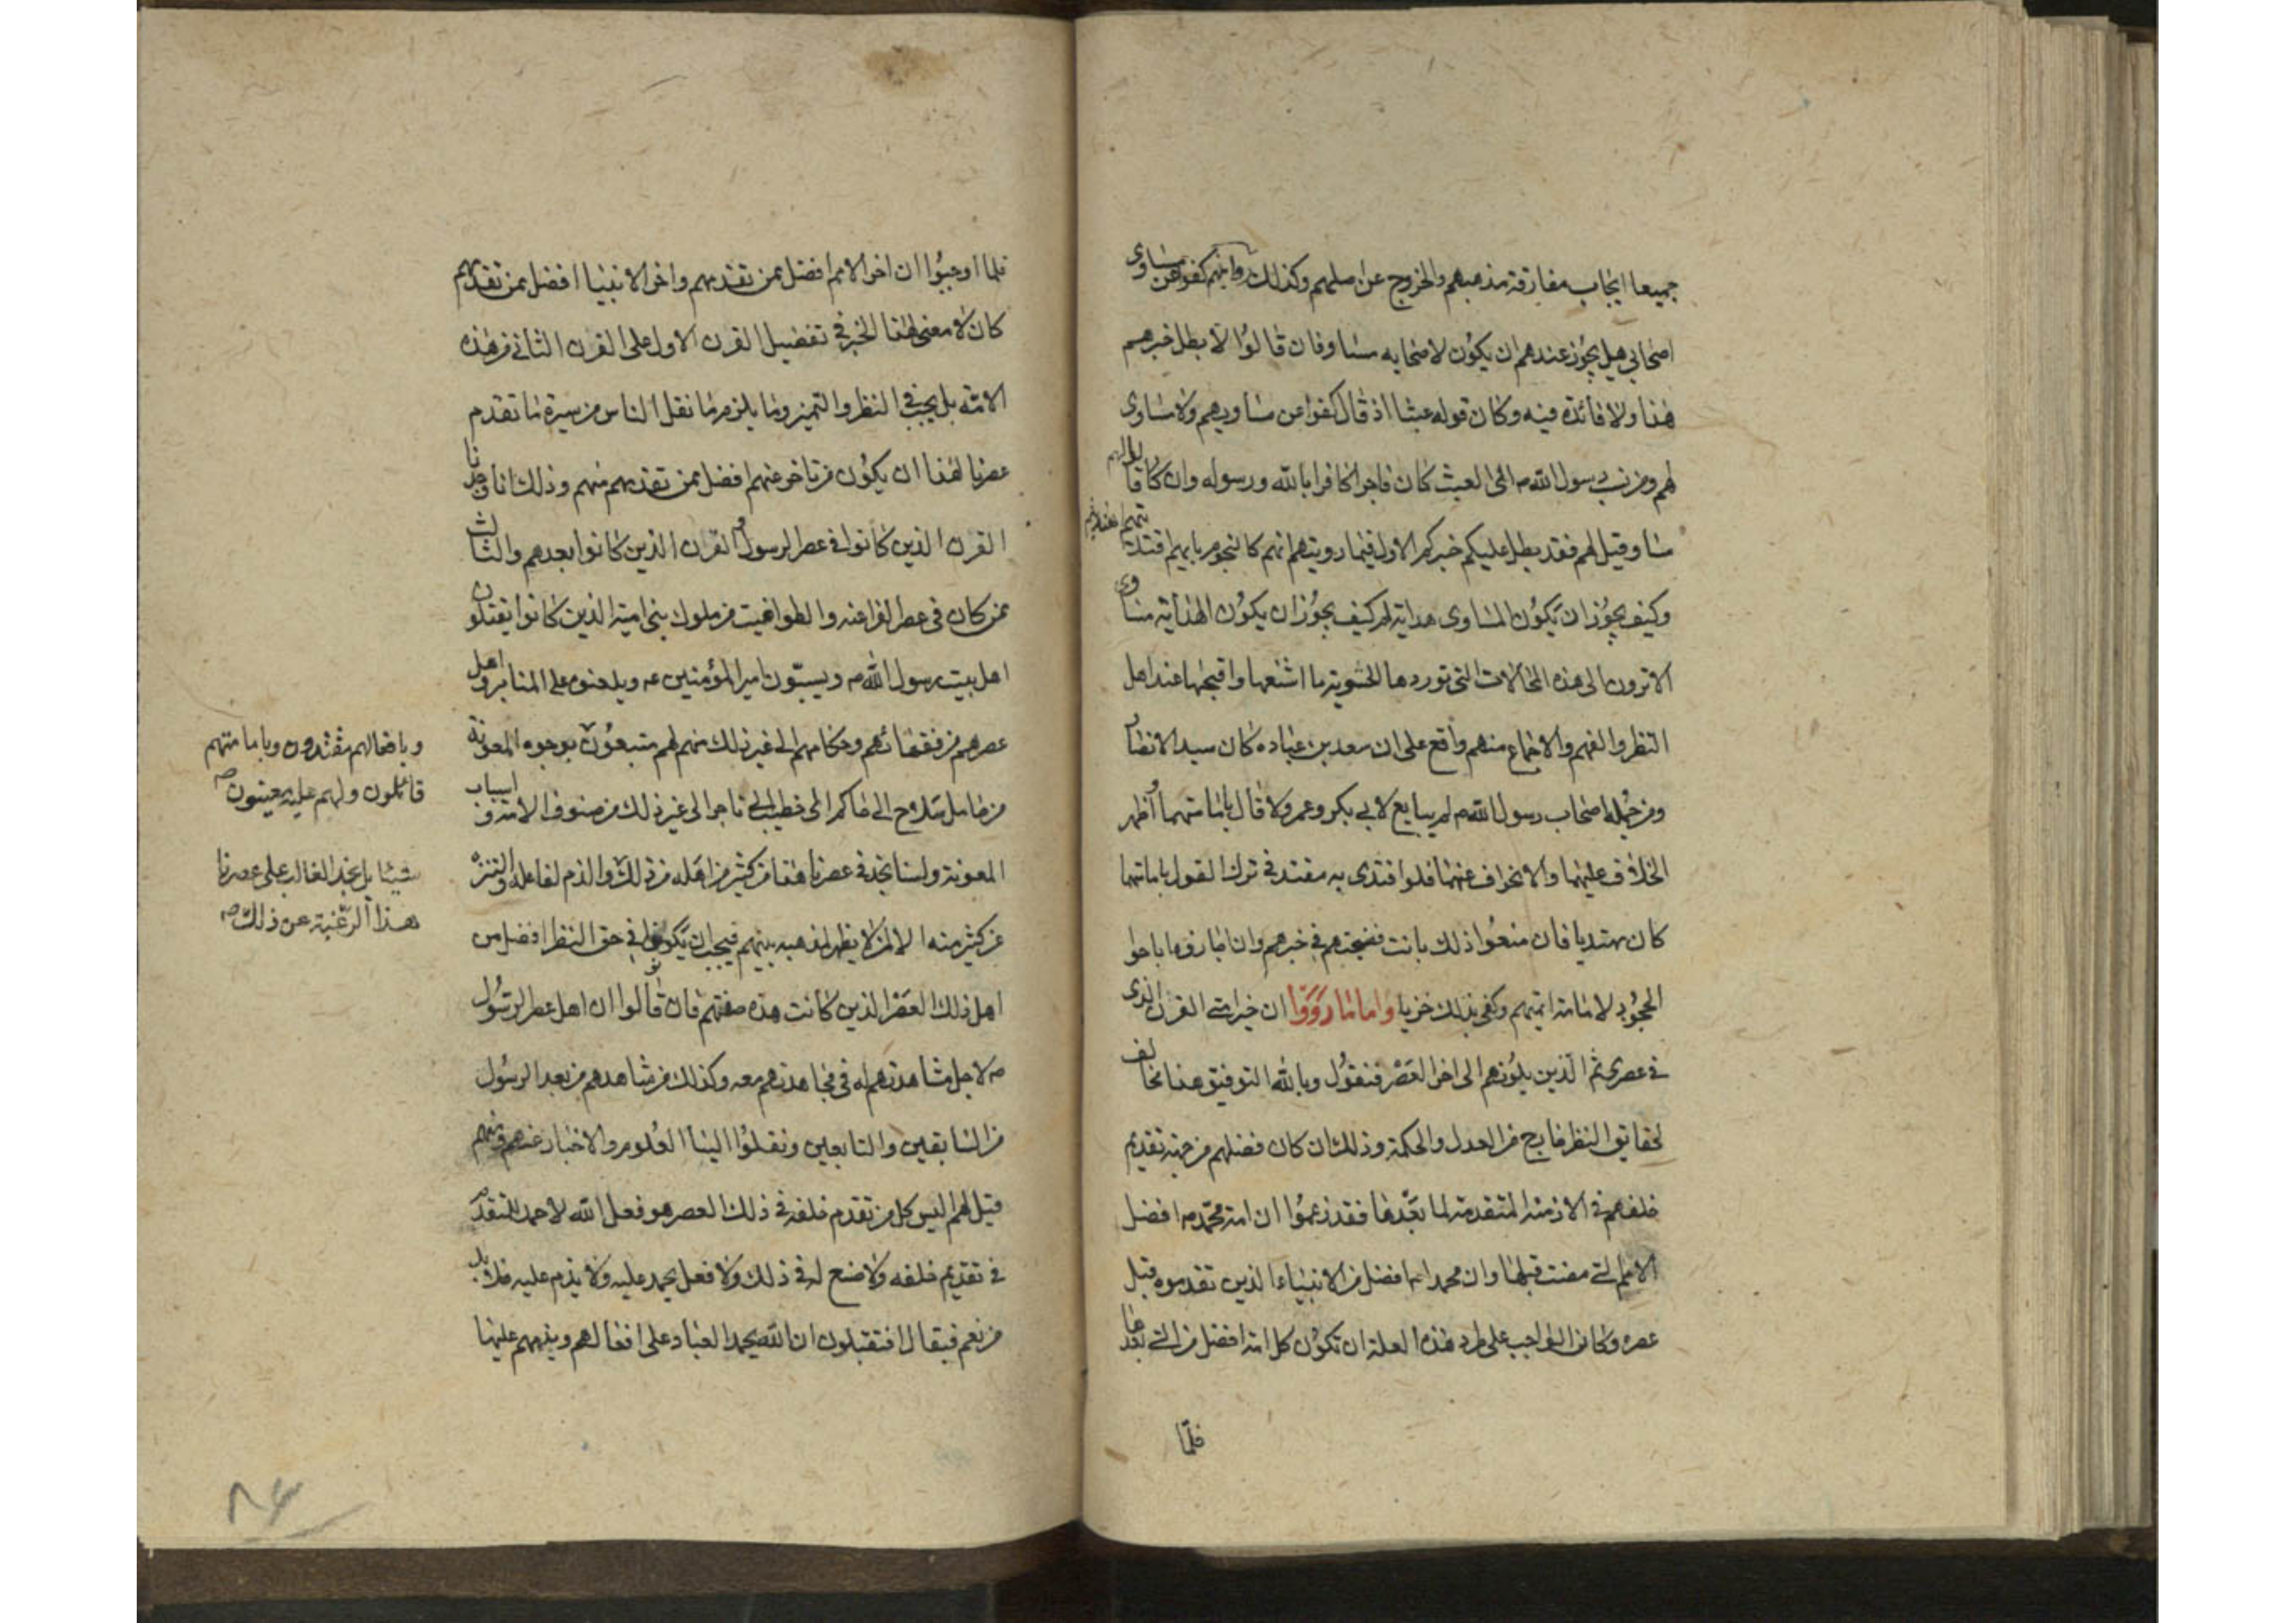 جميعا ايجاب مفارقة مذهبهم والخروج عن اصلهم وكذلك روايتهم كفوا عن مساوى
اصحابى هل يجوز عندهم ان يكون لاصحابه مساو فان قالوا لا بطل خبرهم
هذا ولا فائدة فيه وكان قوله عبثا اذ قال كفوا عن مساويهم ولا مساوى
لهم ومن نسب رسول الله ص الى العبث كان فاجرا كافرا بالله ورسوله وان قالوا كان لهم
مساو قيل لهم فقد بطل عليكم خبركم الاول فيما رويتم انهم كالنجوم بايهم اقتديتم اهتديتم
وكيف يجوز ان يكون المساوى هداية ام كيف يجوز ان يكون الهداية مساوى
الا ترون الى هذه المحالات التى توردها الحشوية ما اشنعها واقبحها عند اهل
النظر والفهم والاجماع منهم واقع على ان سعد بن عباده كان سيد الانصار
ومن جملة اصحاب رسول الله ص لم يبايع لابى بكر وعمر ولا قال بامامتهما واظهر
الخلاف عليهما والانحراف عنهما فلو اقتدى به مقتد فى ترك القول بامامتهما
كان مهتديا فان منعوا ذلك بانت فضيحتهم فى خبرهم وان اجازوه اباحوا
الجحود لامامة ائمتهم وكفى بذلك خزيا واما ما رووا ان خير امتى القرن الذى
فى عصرى ثم الذين يلونهم الى اخر العصر فنقول وبالله التوفيق هذا مخالف
لحقايق النظر خارج من العدل والحكمة وذلك ان كان فضلهم من جهة تقديم
خلقهم فى الازمنة المتقدمة لما بعدها فقد زعموا ان امة محمد ص افضل
الامم التى مضت قبلها وان محمدا ص افضل من الانبياء الذين تقدموه قبل
عصره وكان الواجب على طرد هذه العلة ان تكون كل امة افضل من التى بعدها
فلما
فلما اوجبوا ان اخر الامم افضل ممن تقدمهم واخر الانبيا افضل ممن تقدمهم
كان لا معنى لهذا الخبر فى تفضيل القرن الاول على القرن الثانى من هذه
الامة بل يجب فى النظر والتميز وما يلزم ما نقل الناس من سيرة ما تقدم
عصرنا هذا ان يكون من تاخر عنهم افضل ممن تقدمهم منهم وذلك انا وجدنا
القرن الذين كانوا فى عصر الرسول والقرن الذين كانوا بعدهم والثالث
ممن كان فى عصر الفراعنه والطواغيت من ملوك بنى امية الذين كانوا يقتلون
اهل بيت رسول الله ص ويسبون امير المؤمنين عه ويلعنوه على المنابر واهل
عصرهم من فقهائهم وحكامهم الى غير ذلك منهم لهم متبعون بوجوه المعونة
وبافعالهم مقتدون وبامامتهم
قائلون ولهم عليه معينون ص
من حامل سلاح الى حاكم الى خطيب الى تاجر الى غير ذلك من صنوف الامة واسباب
المعونة ولسنا نجد فى عصرنا هذا من كثير من اهله من ذلك والذم لفاعله والتنزه
شيئا بل نجد الغالب على عصرنا
هذا الرغبة عن ذلك ص
عن كثير منه الا لمن لا يظهر مذهبه بينهم فيجب ان يكونوا فى حق النظر افضل من
اهل ذلك العصر الذين كانت هذه صفتهم فان قالوا ان اهل عصر الرسول
ص لاجل مشاهدتهم له فى مجاهدتهم معه وكذلك من شاهدهم من بعد الرسول
من السابقين والتابعين ونقلوا الينا العلوم والاخبار عنهم
قيل لهم اليس كل من تقدم خلقه فى ذلك العصر هو فعل الله لا حمد للمتقدم
فى تقديم خلقه ولا صنع له فى ذلك ولا فعل يحمد عليه ولا يذم عليه فلا بد
من نعم فيقال افتقبلون ان الله يحمد العباد على افعالهم ويذمهم عليها
٨٤